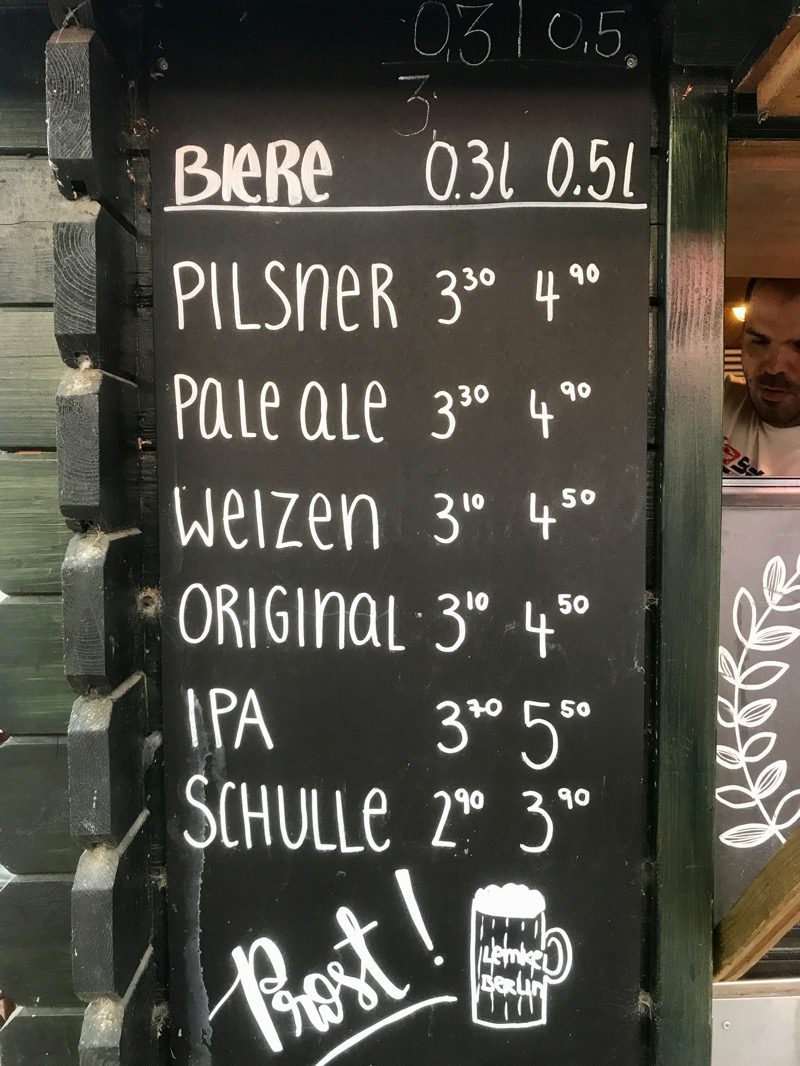 0,3 | 0,5
3
BIERE 0.3l 0.5l
PILSNER 3³⁰ 4⁹⁰
Pale ale 3³⁰ 4⁹⁰
Weizen 3¹⁰ 4⁵⁰
ORIGINAL 3¹⁰ 4⁵⁰
IPA 3⁷⁰ 5⁵⁰
SCHULLE 2⁹⁰ 3⁹⁰
Prost!
Lemke
BERLIN